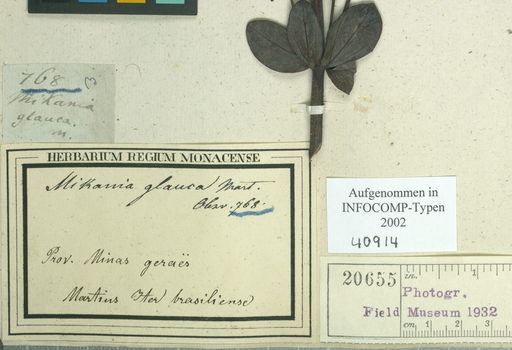 768
Mikania
glauca.
m.
HERBARIUM REGIUM MONACENSE
Mikania glauca Mart.
Obsv. 768.
Prov. Minas geraës
Martius Iter brasiliense
Aufgenommen in
INFOCOMP-Typen
2002
40914
20655
in.
1
Photogr.
Field Museum 1932
cm
1
2
3